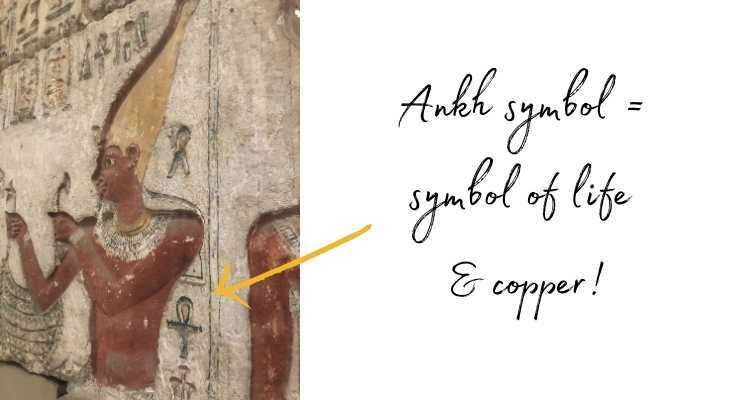 Ankh symbol =
symbol of life
& copper!